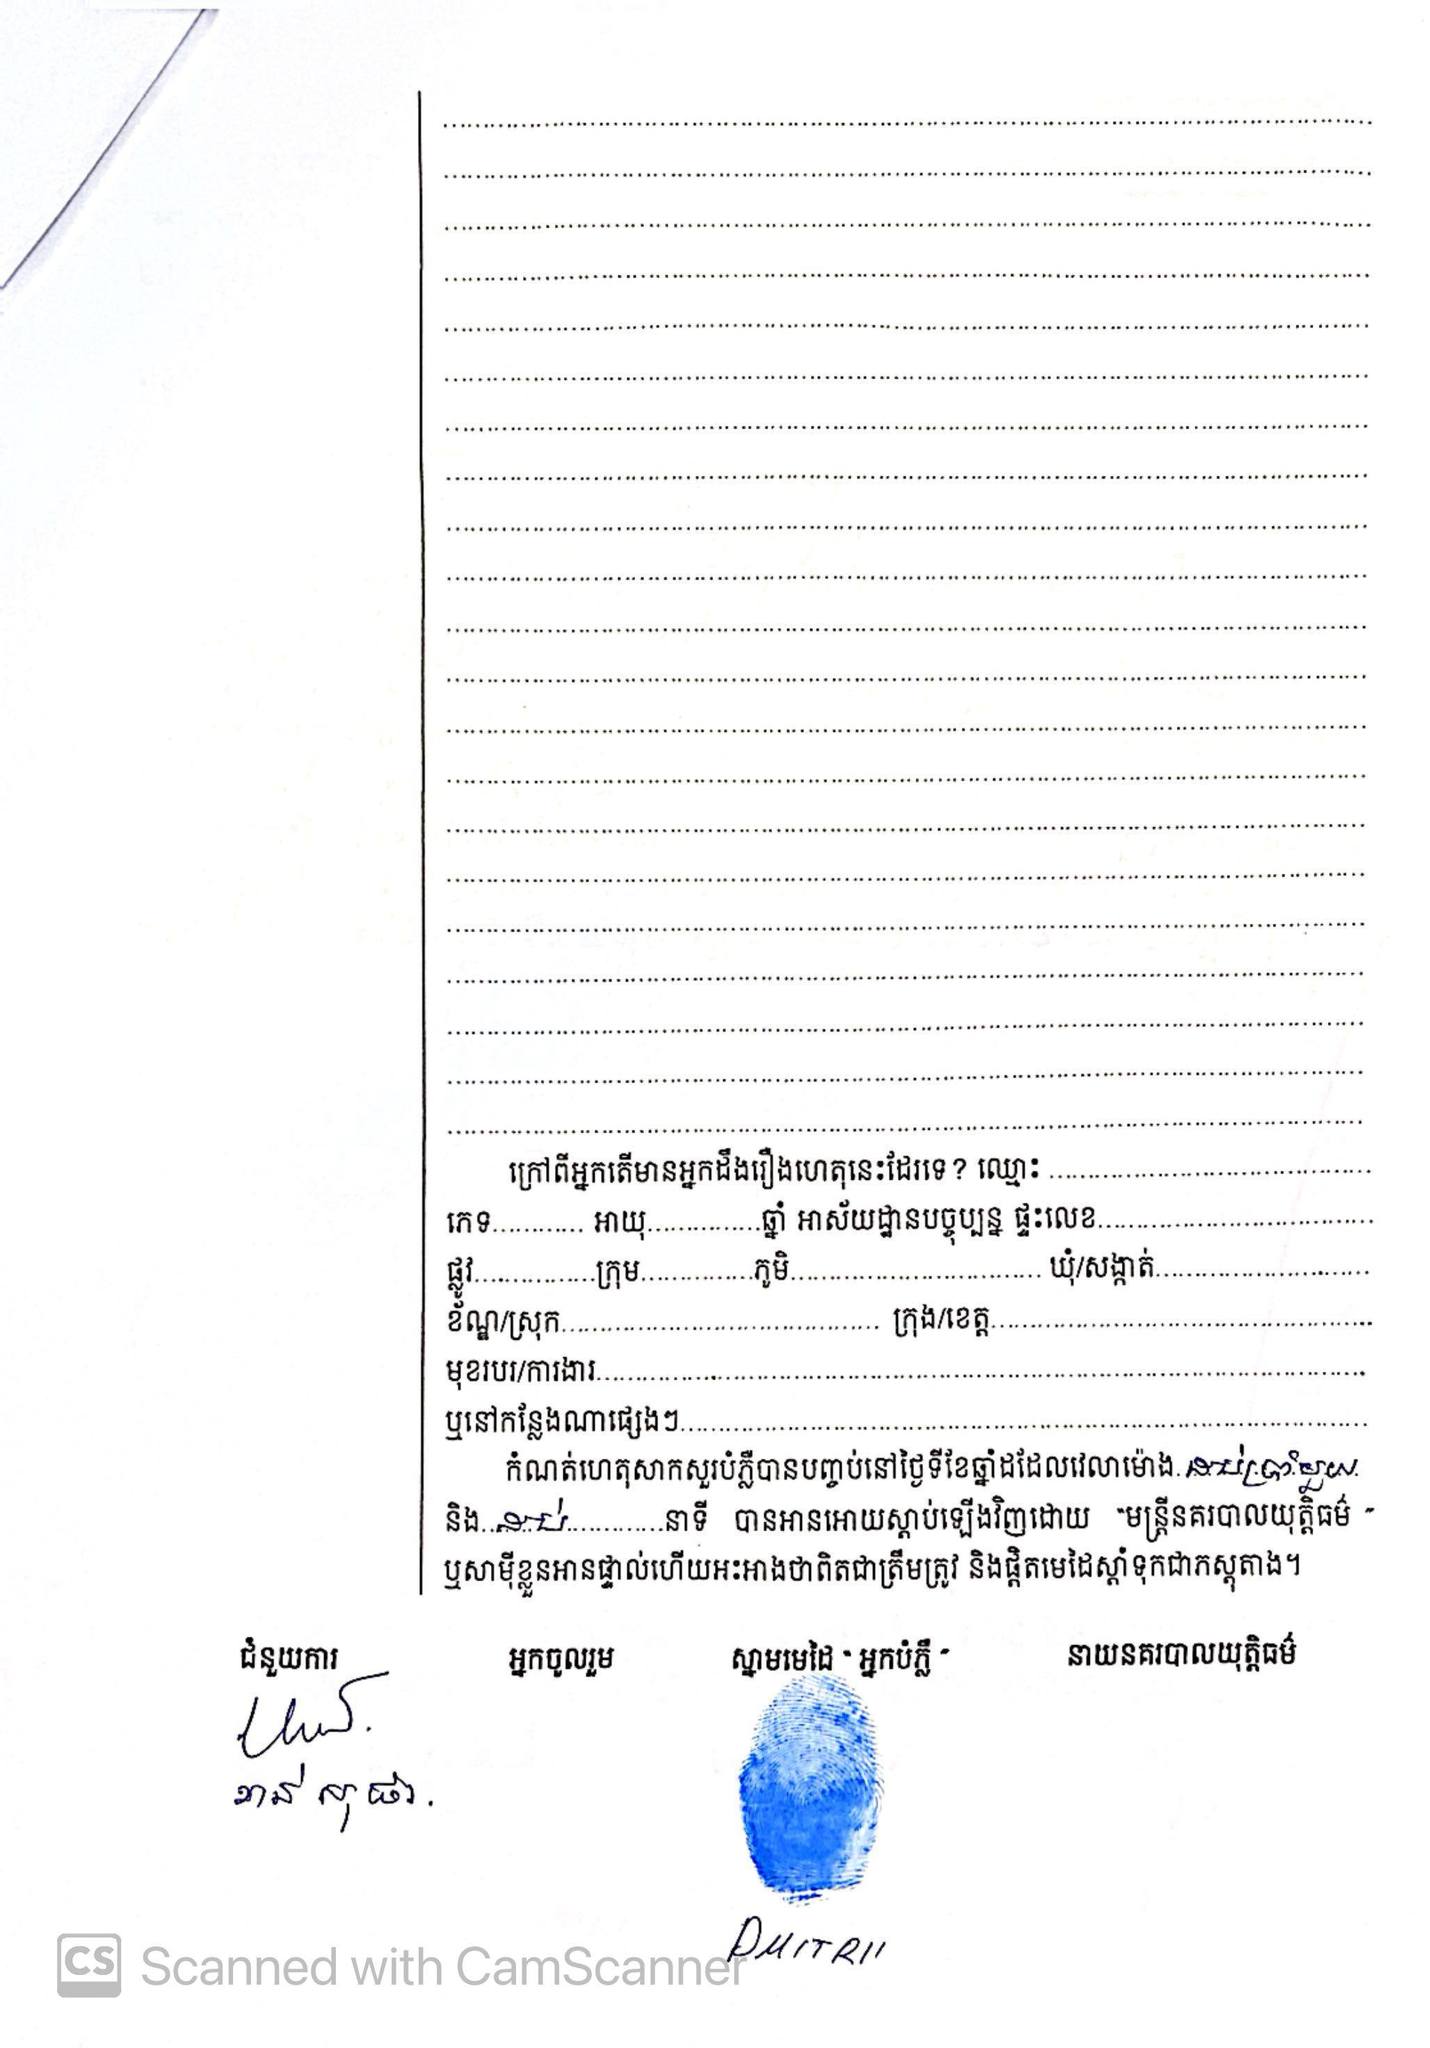 ក្រៅពីអ្នកតើមានអ្នកដឹងរឿងហេតុនេះដែរទេ? ឈ្មោះ ........................................
ភេទ............ អាយុ...............ឆ្នាំ អាស័យដ្ឋានបច្ចុប្បន្ន ផ្ទះលេខ...................................
ផ្លូវ................ក្រុម...............ភូមិ................................. ឃុំ/សង្កាត់............................
ខ័ណ្ឌ/ស្រុក.......................................... ក្រុង/ខេត្ត..................................................
មុខរបរ/ការងារ....................................................................................................
ឬនៅកន្លែងណាផ្សេងៗ..........................................................................................
កំណត់ហេតុសាកសួរបំភ្លឺបានបញ្ចប់នៅថ្ងៃទីខែឆ្នាំដដែលវេលាម៉ោង ដប់ប្រាំមួយ
និង..ដប់.............នាទី បានអានអោយស្តាប់ឡើងវិញដោយ “មន្ត្រីនគរបាលយុត្តិធម៌ ”
ឬសាម៉ីខ្លួនអានផ្ទាល់ហើយអះអាងថាពិតជាត្រឹមត្រូវ និងផ្តិតមេដៃស្តាំទុកជាភស្តុតាង។
ជំនួយការ អ្នកចូលរួម ស្នាមមេដៃ “ អ្នកបំភ្លឺ ” នាយនគរបាលយុត្តិធម៌
DMITRII
CS Scanned with CamScanner